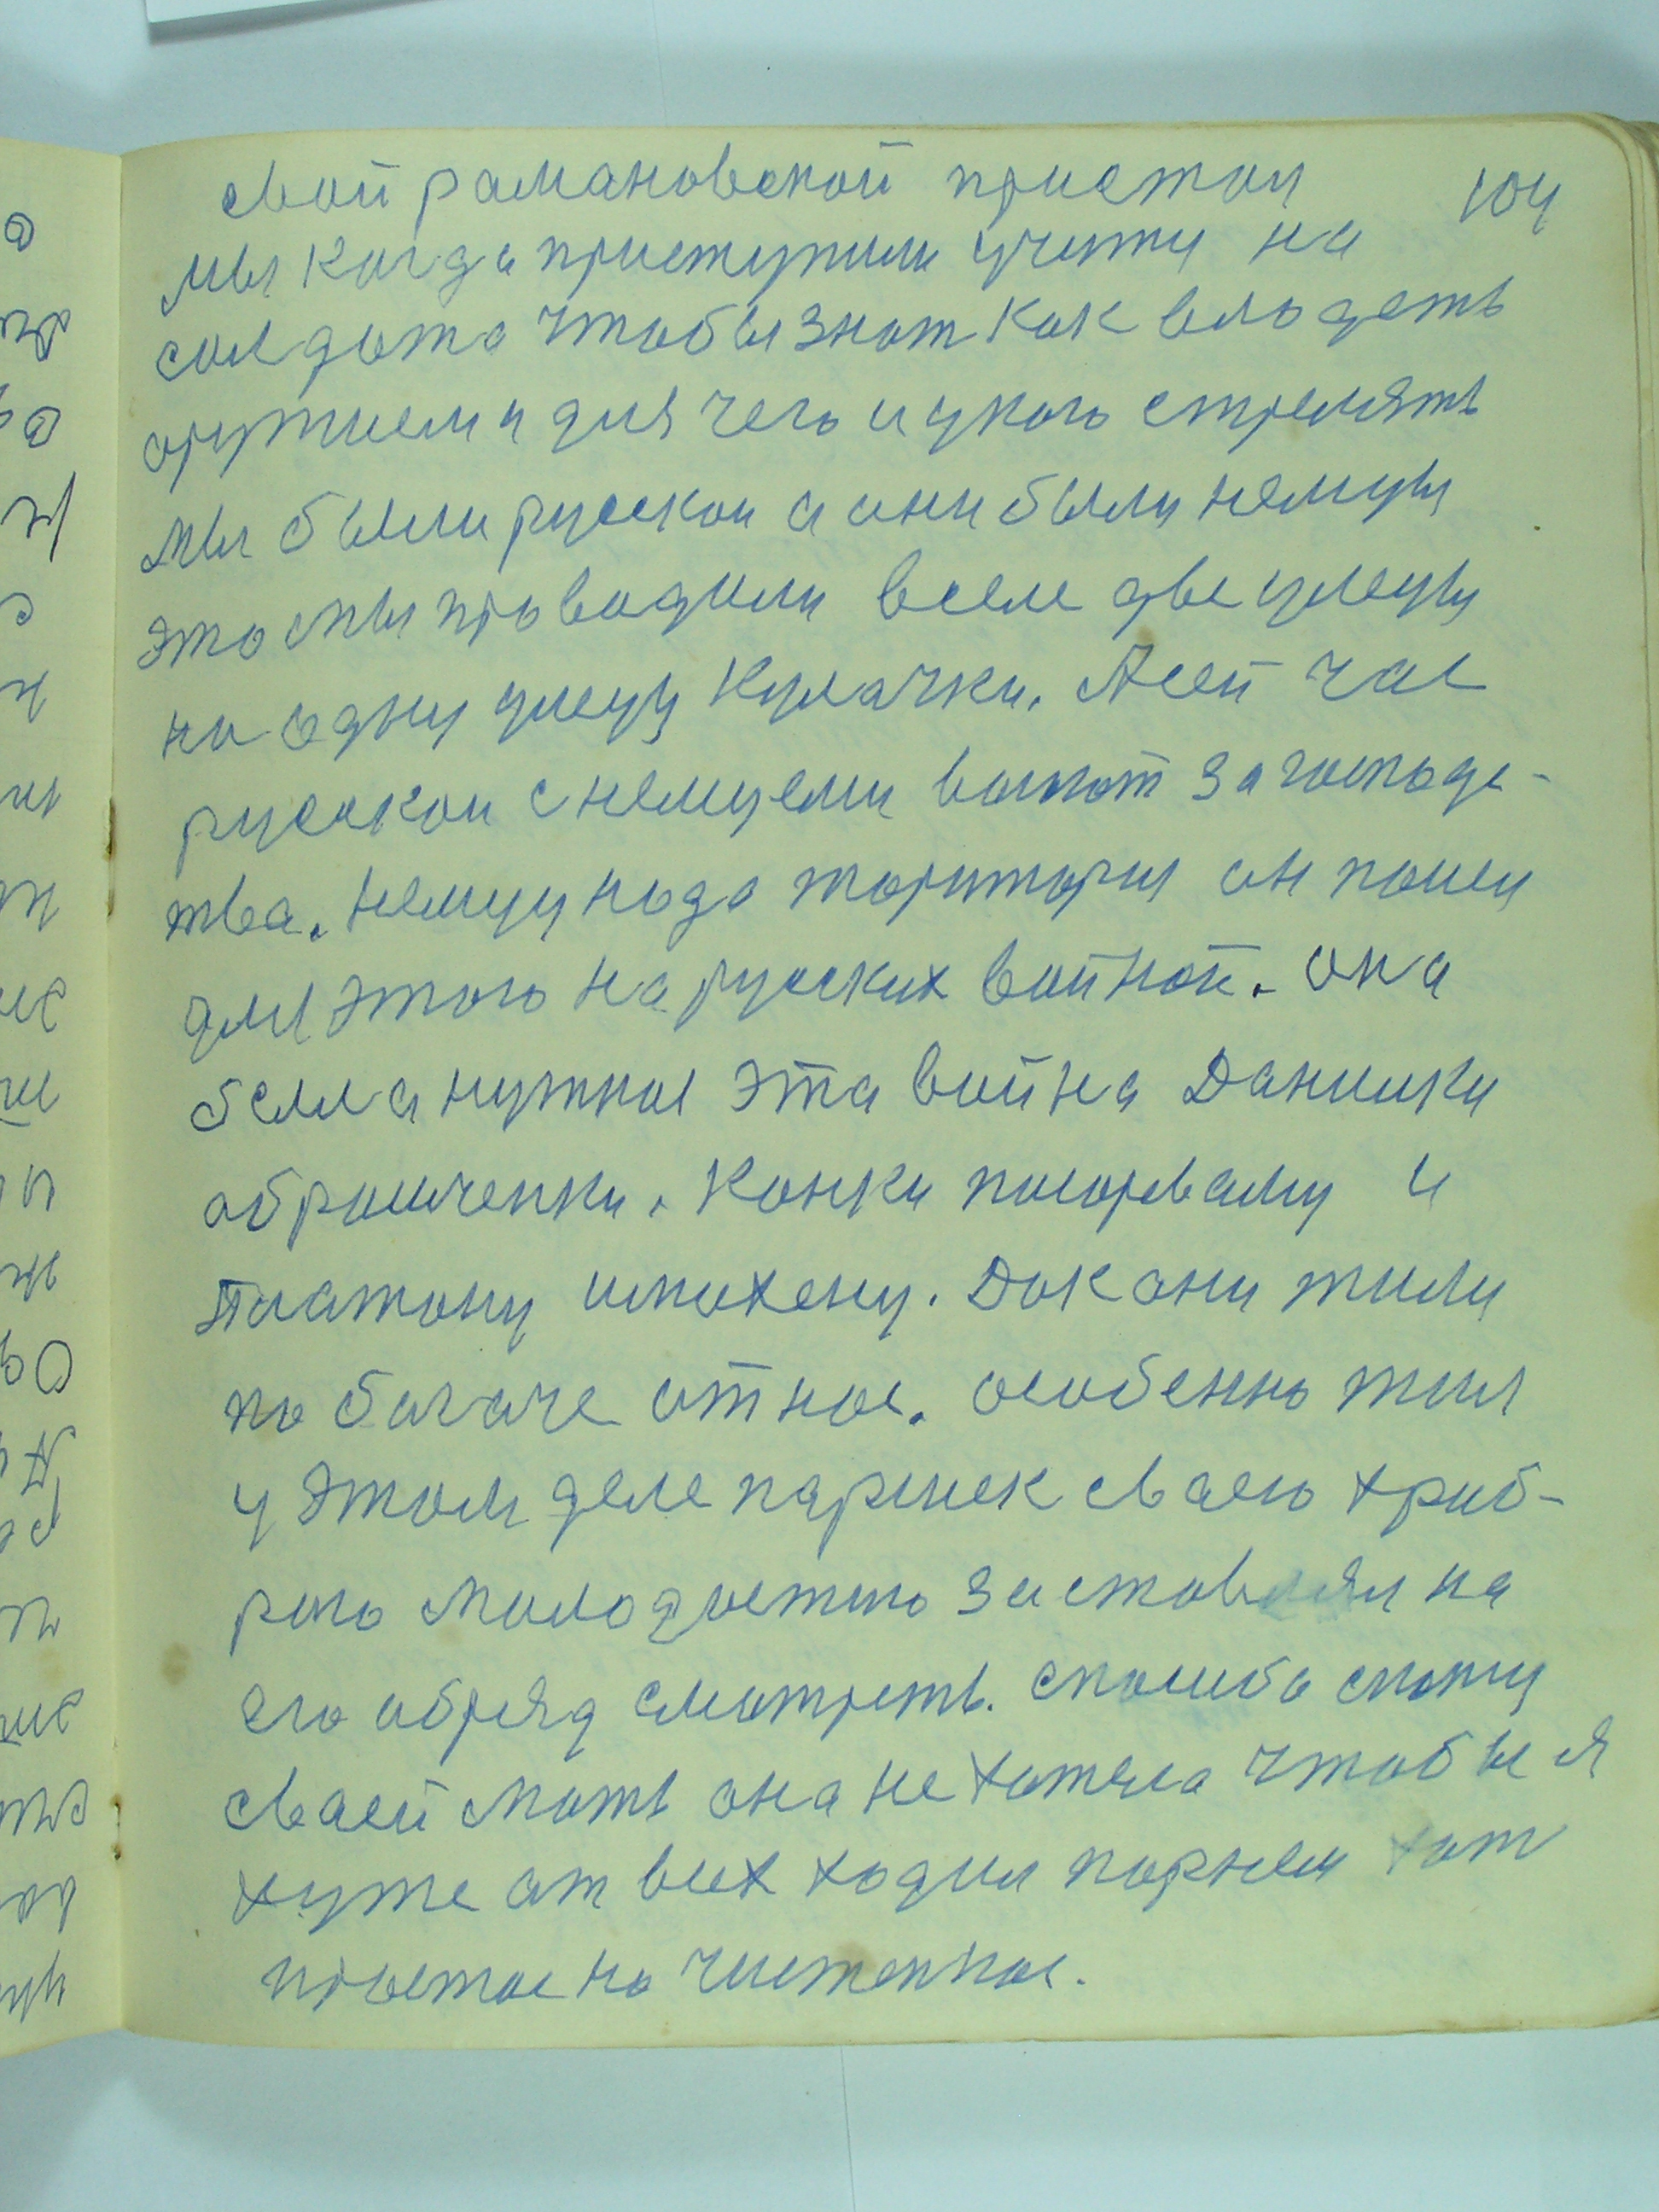 свой рамановской пристол 104
мы когда приступили учиту на
солдата чтобы знат как вло деть
оружием и для чего и укого стрелять
мы были русскои а они были немцы
это мы про водили в селе две улецы
на одну улецу кулачки. А сей час
русскои с немцеми воюют за господс-
тва. Немцу надо ториторыя он пошел
для этого на русских войной. она
была нужная эта война Данилки
. Конки и
Платону . Дак они жили
по багаче от нас. особенно жил
у этом деле парынек сваею храб-
рою молодостью заставлял на
его обряд смотреть. спасиба скожу
сваей мать она не хотела чтобы я
хуже от всех ходил парнем хот
простое но чистенкое.